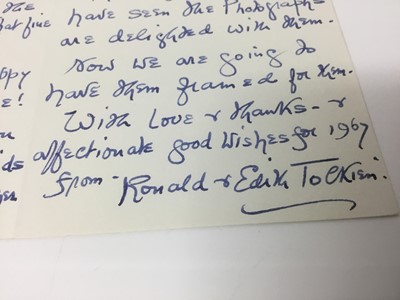 the
that five have seen the Photographs
are delighted with them.
Now we are going to
have them framed for them.
With Love & thanks - &
affectionate good wishes for 1967
from - Ronald & Edith Tolkien.